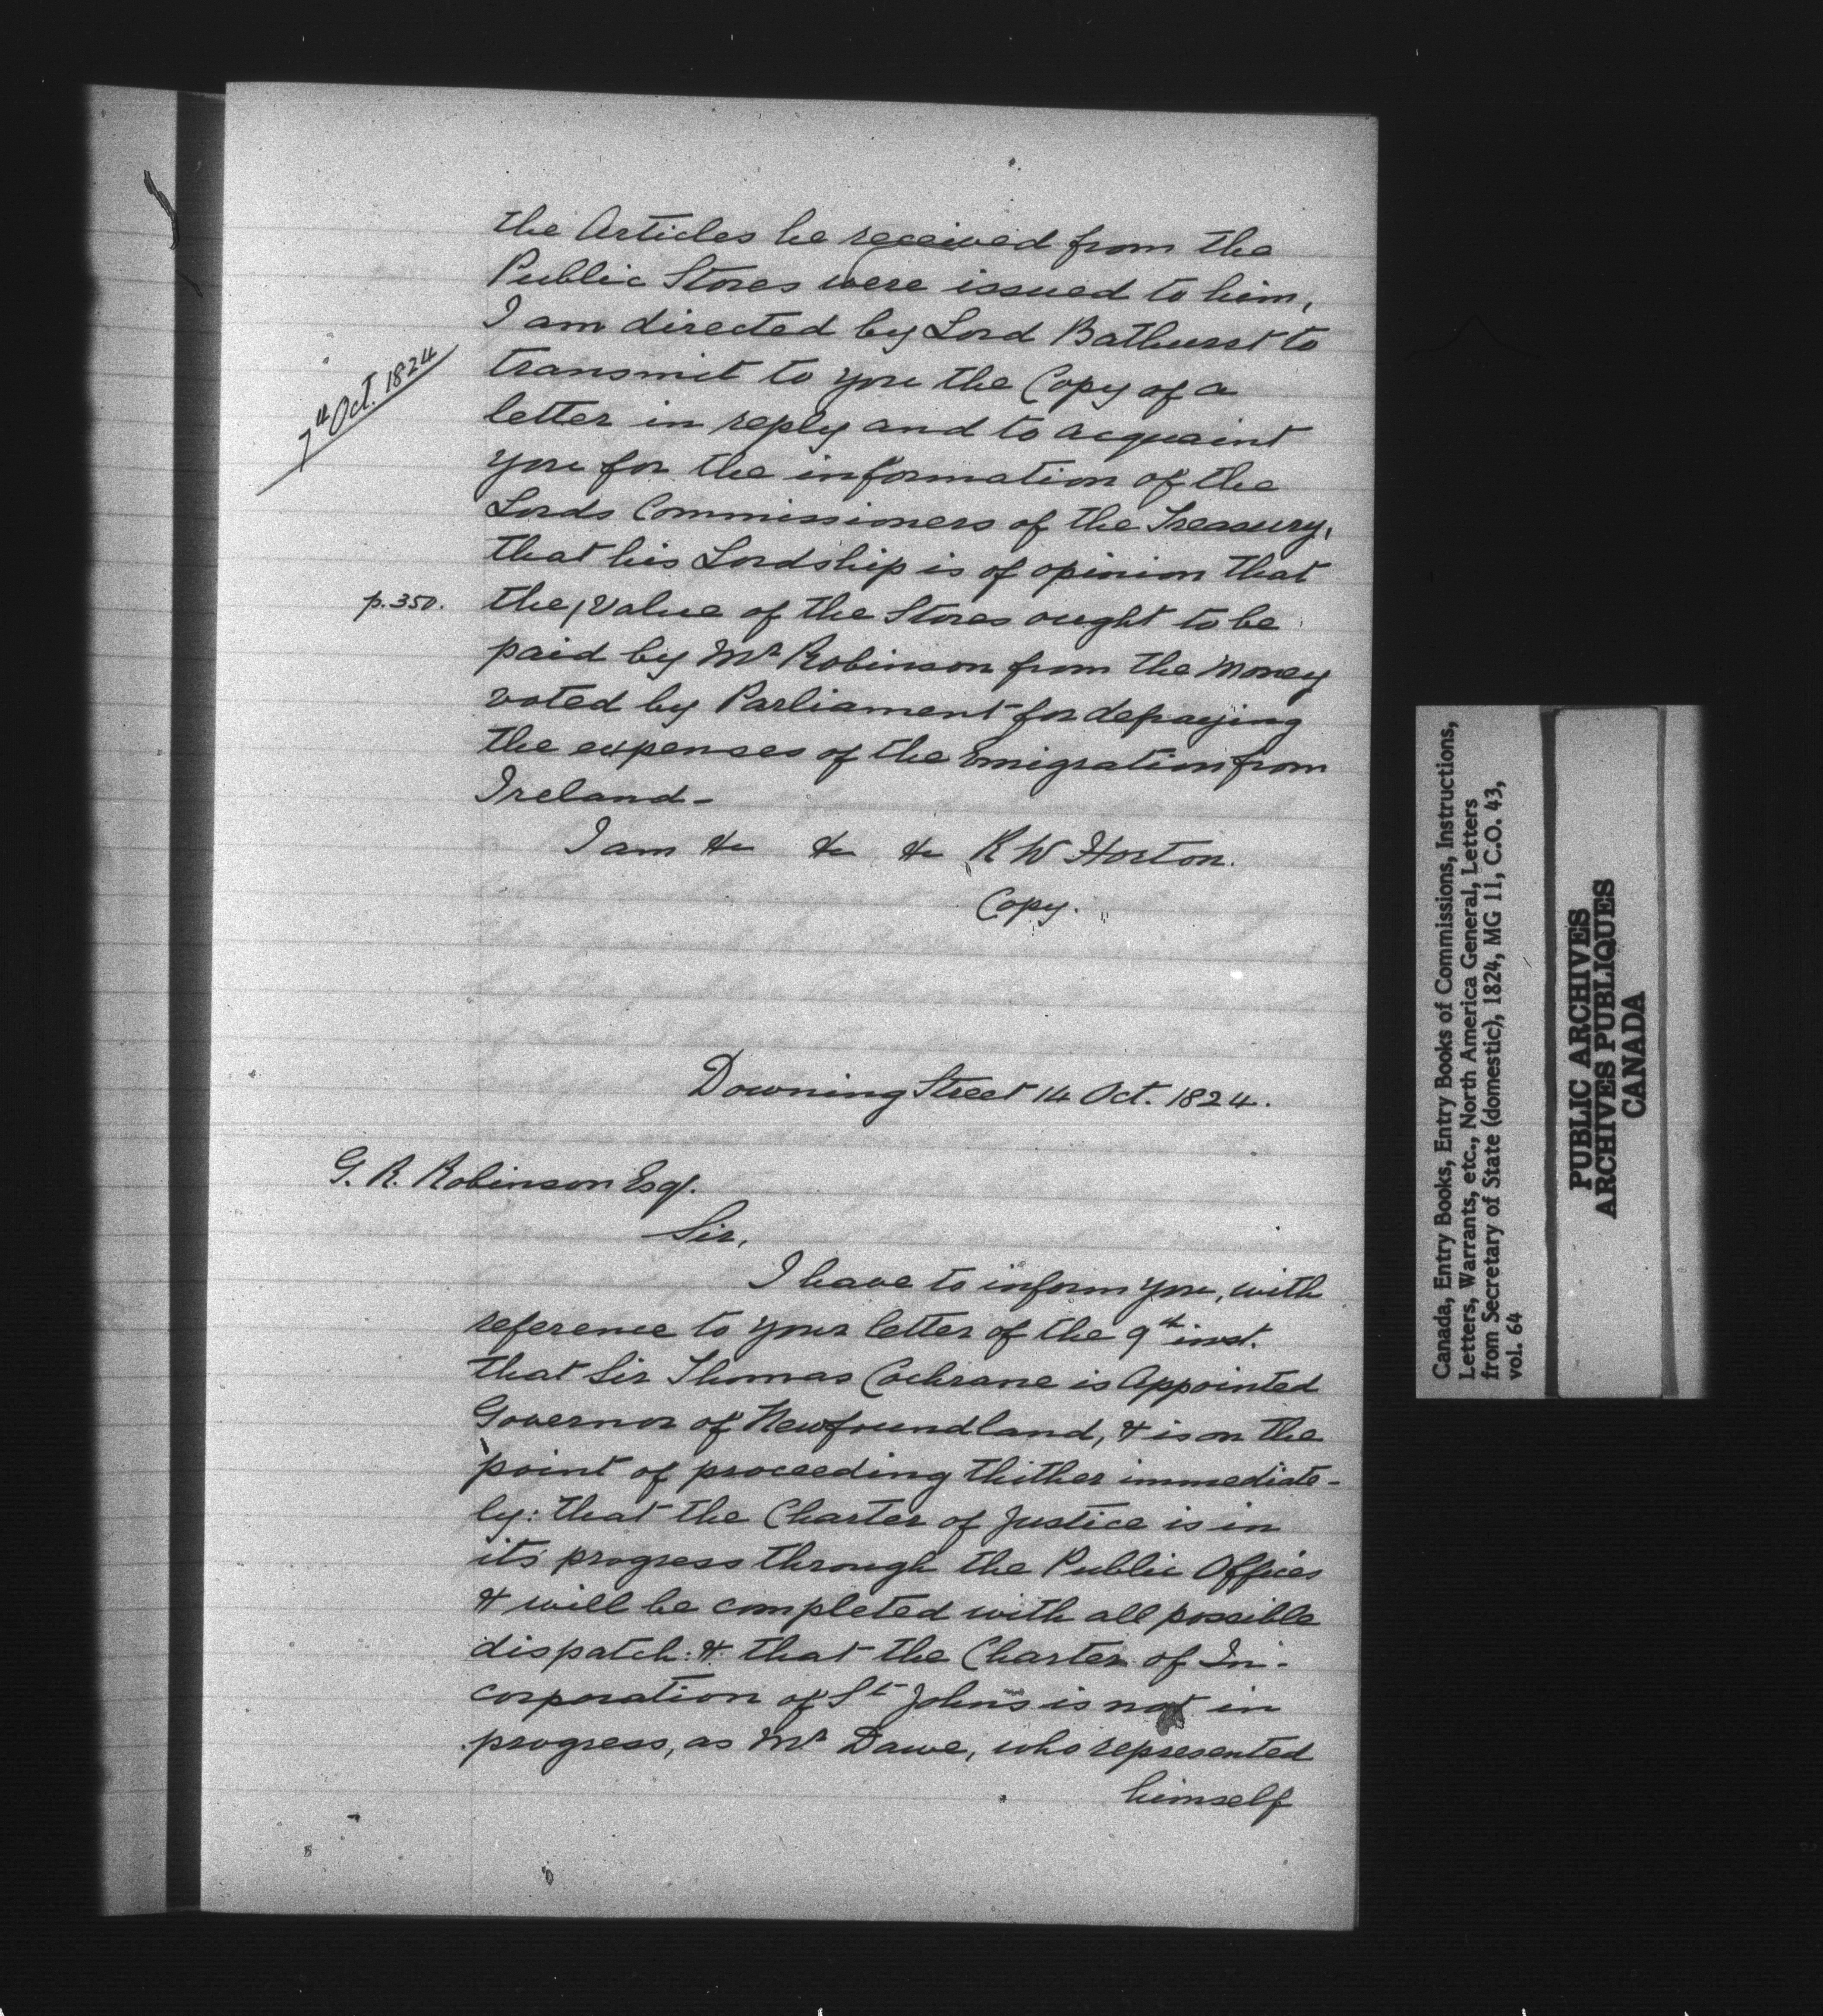 the Articles he received from the
Public Stores were issued to him,
I am directed by Lord Bathurst to
7th Oct. 1824
transmit to you the Copy of a
letter in reply and to acquaint
you for the information of the
Lords Commissioners of the Treasury,
that his Lordship is of opinion that
p.350. the/Value of the Stores ought to be
paid by Mr Robinson from the Money
voted by Parliament for defraying
the expenses of the Emigration from
Ireland-
I am &c &c &c R W Horton.
Copy.
Downing Street 14 Oct. 1824.
G. R. Robinson Esq.
Sir,
I have to inform you, with
reference to your letter of the 9th inst.
that Sir Thomas Cochrane is Appointed
Governor of Newfoundland, & is on the
point of proceeding thither immediate-
ly: that the Charter of Justice is in
its progress through the Public Offices
& will be completed with all possible
dispatch: & that the Charter of In-
corporation of St Johns is not in
progress, as Mr Dawe, who represented
himself
Canada, Entry Books, Entry Books of Commissions, Instructions,
Letters, Warrants, etc., North America General, Letters
from Secretary of State (domestic), 1824, MG 11, C.O. 43,
vol. 64
PUBLIC ARCHIVES
ARCHIVES PUBLIQUES
CANADA